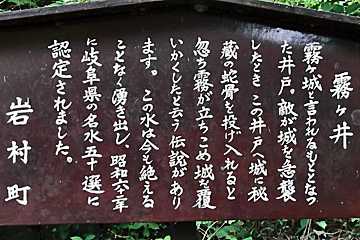 霧ヶ井
霧ヶ城と言われるもとなっ
た井戸。敵が城を急襲
したとき この井戸へ城に秘
蔵の蛇骨を投げ入れると
忽ち霧が立ちこめ城を覆
いかくしたと云う伝説があり
ます。この水は今も絶える
ことなく湧き出し、昭和六二年
に岐阜県の名水五十選に
認定されました。
岩村町